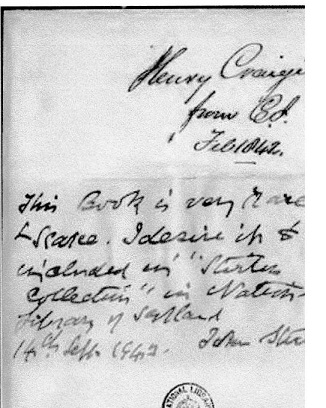 Henry Craigi
from C.S.
Feb 1842.
This Book is very Rare
& Scarce. I desire it to
included in "Sturten
Collection" in Nation
Library of Scotland
14th Sept. 1942. John Ste
NATIONAL LIBRA